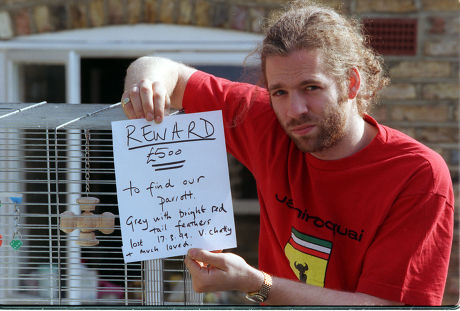 REWARD
£500
to find our
parrot.
Grey with bright Red
tail feathers
lost 17.3.99. V. chatty
+ much loved.
Jamiroquai